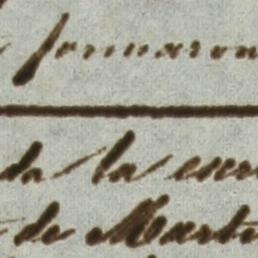 formaron
da la escri
de Marti